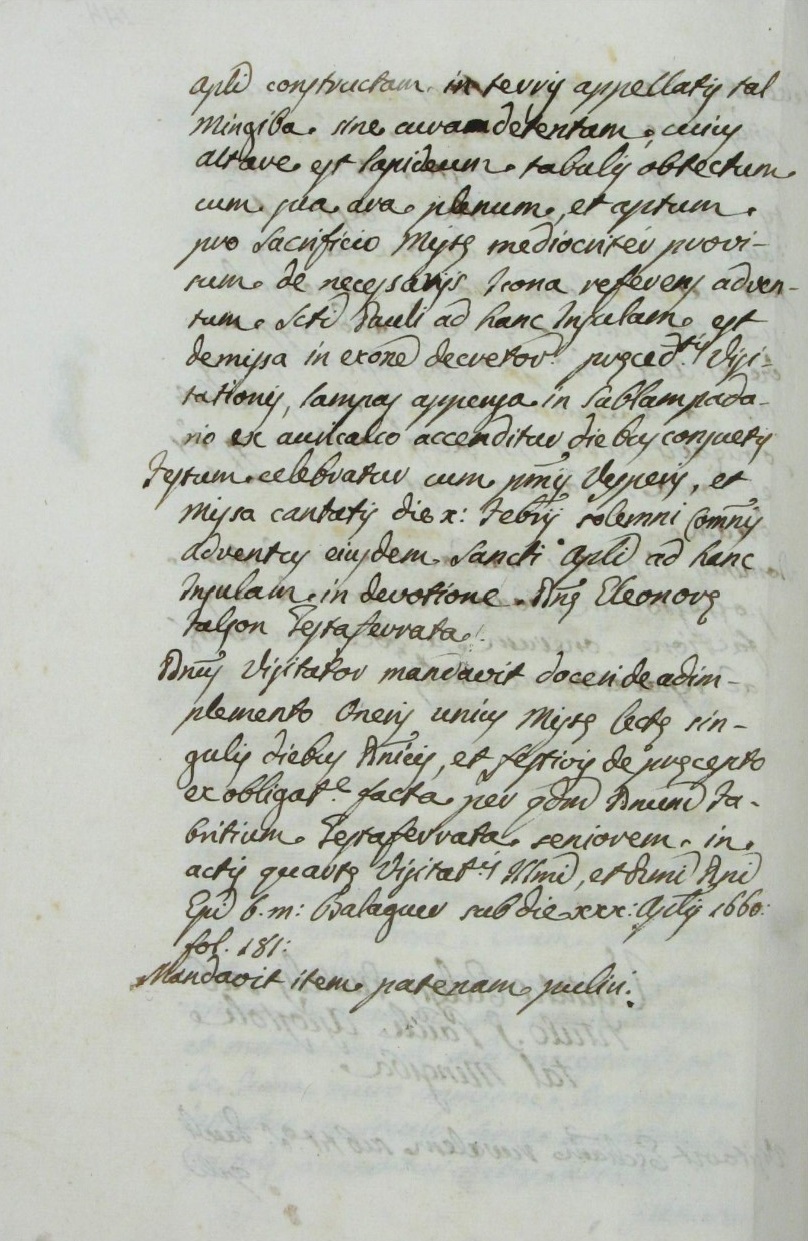 Apli constructam in terris appellatis tal
Mingiba sine cura detentam, cuius
altare est lapideum tabulis obtectum
cum sua ara plenum, et aptum
pro Sacrificio Missę mediocriter provi-
sum de necessarijs Icona referens adven-
tum Scti Pauli ad hanc Insulam est
demissa in exone decretor. pręcedtis Visi-
tationis, lampas appensa in sublampada-
rio ex auricalco accenditur diebus consuetis
Festum celebratur cum pmis Vesperis, et
Missa cantatis die x: Febrij solemni Comnis
adventus eiusdem Sancti Apli ad hanc
Insulam in devotione Dnę Eleonorę
Falson Testaferrata.
Dnus Visitator mandavit doceri de adim-
plemento Oneris unius Missę lectę sin-
gulis diebus Dnicis, et festivis de pręcepto
ex obligate facta per qdm Dnum Fa-
britium Testaferrata seniorem in
actis quartę Visitatis Illmi, et Rmi Dni
Epi b.m: Balaguer sub die xxx: Aplis 1660:
fol. 181:
Mandavit item patenam puliri.